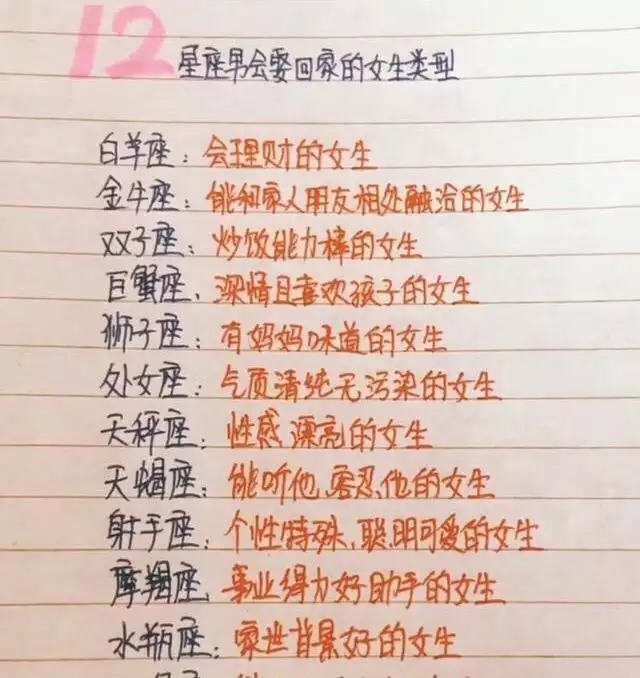 12
星座男会娶回家的女生类型
白羊座：会理财的女生
金牛座：能和家人朋友相处融洽的女生
双子座：炒饭能力棒的女生
巨蟹座、深情且喜欢孩子的女生
狮子座：有妈妈味道的女生
处女座：气质清纯无污染的女生
天秤座：性感漂亮的女生
天蝎座：能听他、容忍他的女生
射手座：个性特殊、聪明可爱的女生
摩羯座、事业得力好助手的女生
水瓶座：家世背景好的女生